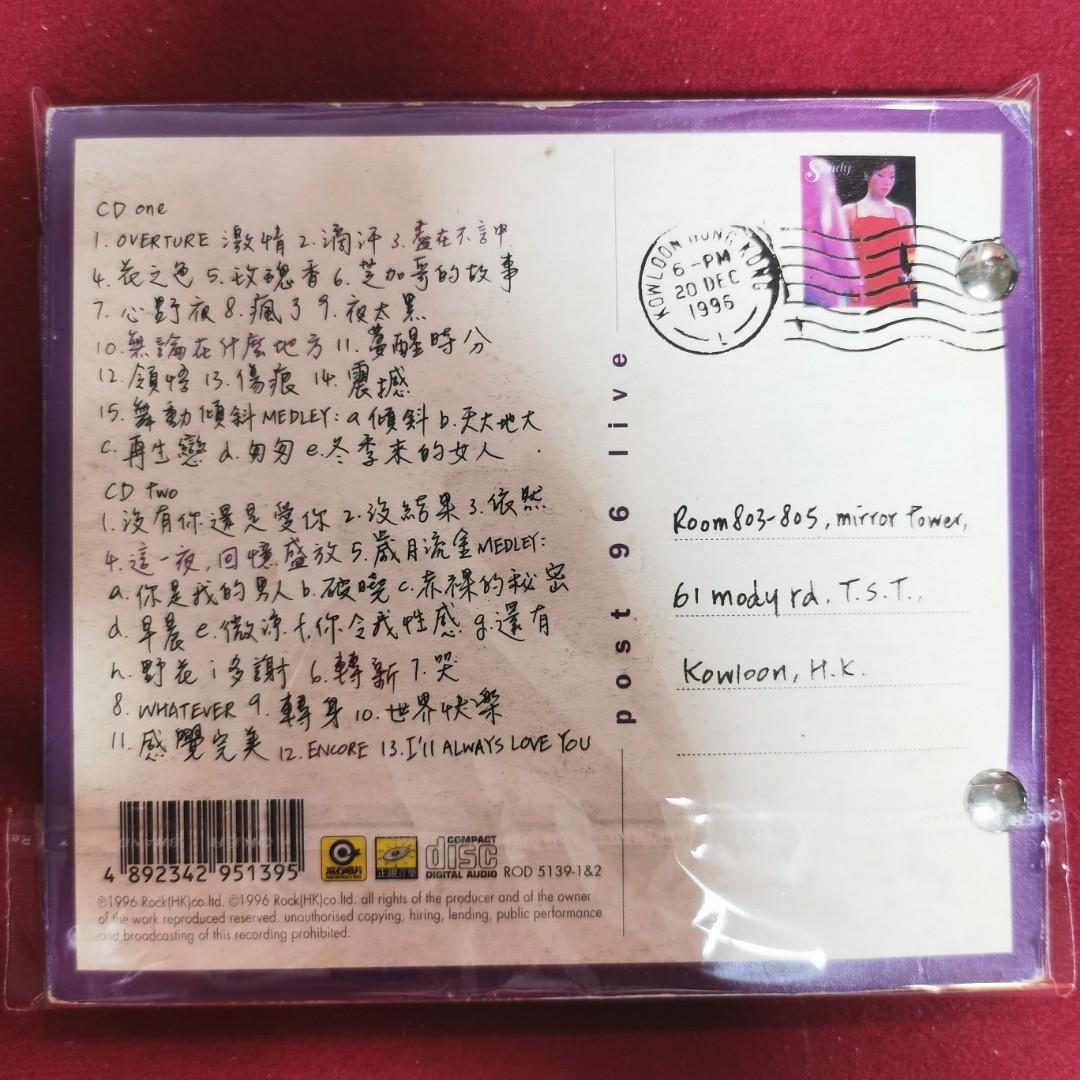 CD one
1. OVERTURE 激情 2. 滴汗 3. 盡在不言中
4. 花之色 5. 玫瑰香 6. 芝加哥的故事
7. 心野夜 8. 瘋了 9. 夜太黑
10. 無論在什麼地方 11. 夢醒時分
12. 領悟 13. 傷痕 14. 震撼
15. 舞動傾斜 MEDLEY: a 傾斜 b. 天大地大
c. 再生戀 d. 匆匆 e. 冬季來的女人
CD two
1. 沒有你還是愛你 2. 沒結果 3. 依然
4. 這一夜, 回憶盛放 5. 歲月流金 MEDLEY:
a. 你是我的男人 b. 破曉 c. 赤裸的秘密
d. 早晨 e. 微涼 f. 你令我性感 g. 還有
h. 野花 i 多謝 6. 轉新 7. 哭
8. WHATEVER 9. 轉身 10. 世界快樂
11. 感覺完美 12. ENCORE 13. I'll ALWAYS LOVE YOU
4 892342 951395
滾石唱片
正視音樂
COMPACT
disc
DIGITAL AUDIO
ROD 5139-1&2
℗1996 Rock(HK)co.ltd. ©1996 Rock(HK)co.ltd. all rights of the producer and of the owner
of the work reproduced reserved. unauthorised copying, hiring, lending, public performance
and broadcasting of this recording prohibited.
post 96 live
Sandy
KOWLOON HONG KONG
6-PM
20 DEC
1996
1
Room 803-805, mirror Tower,
61 mody rd. T.S.T.,
Kowloon, H.K.